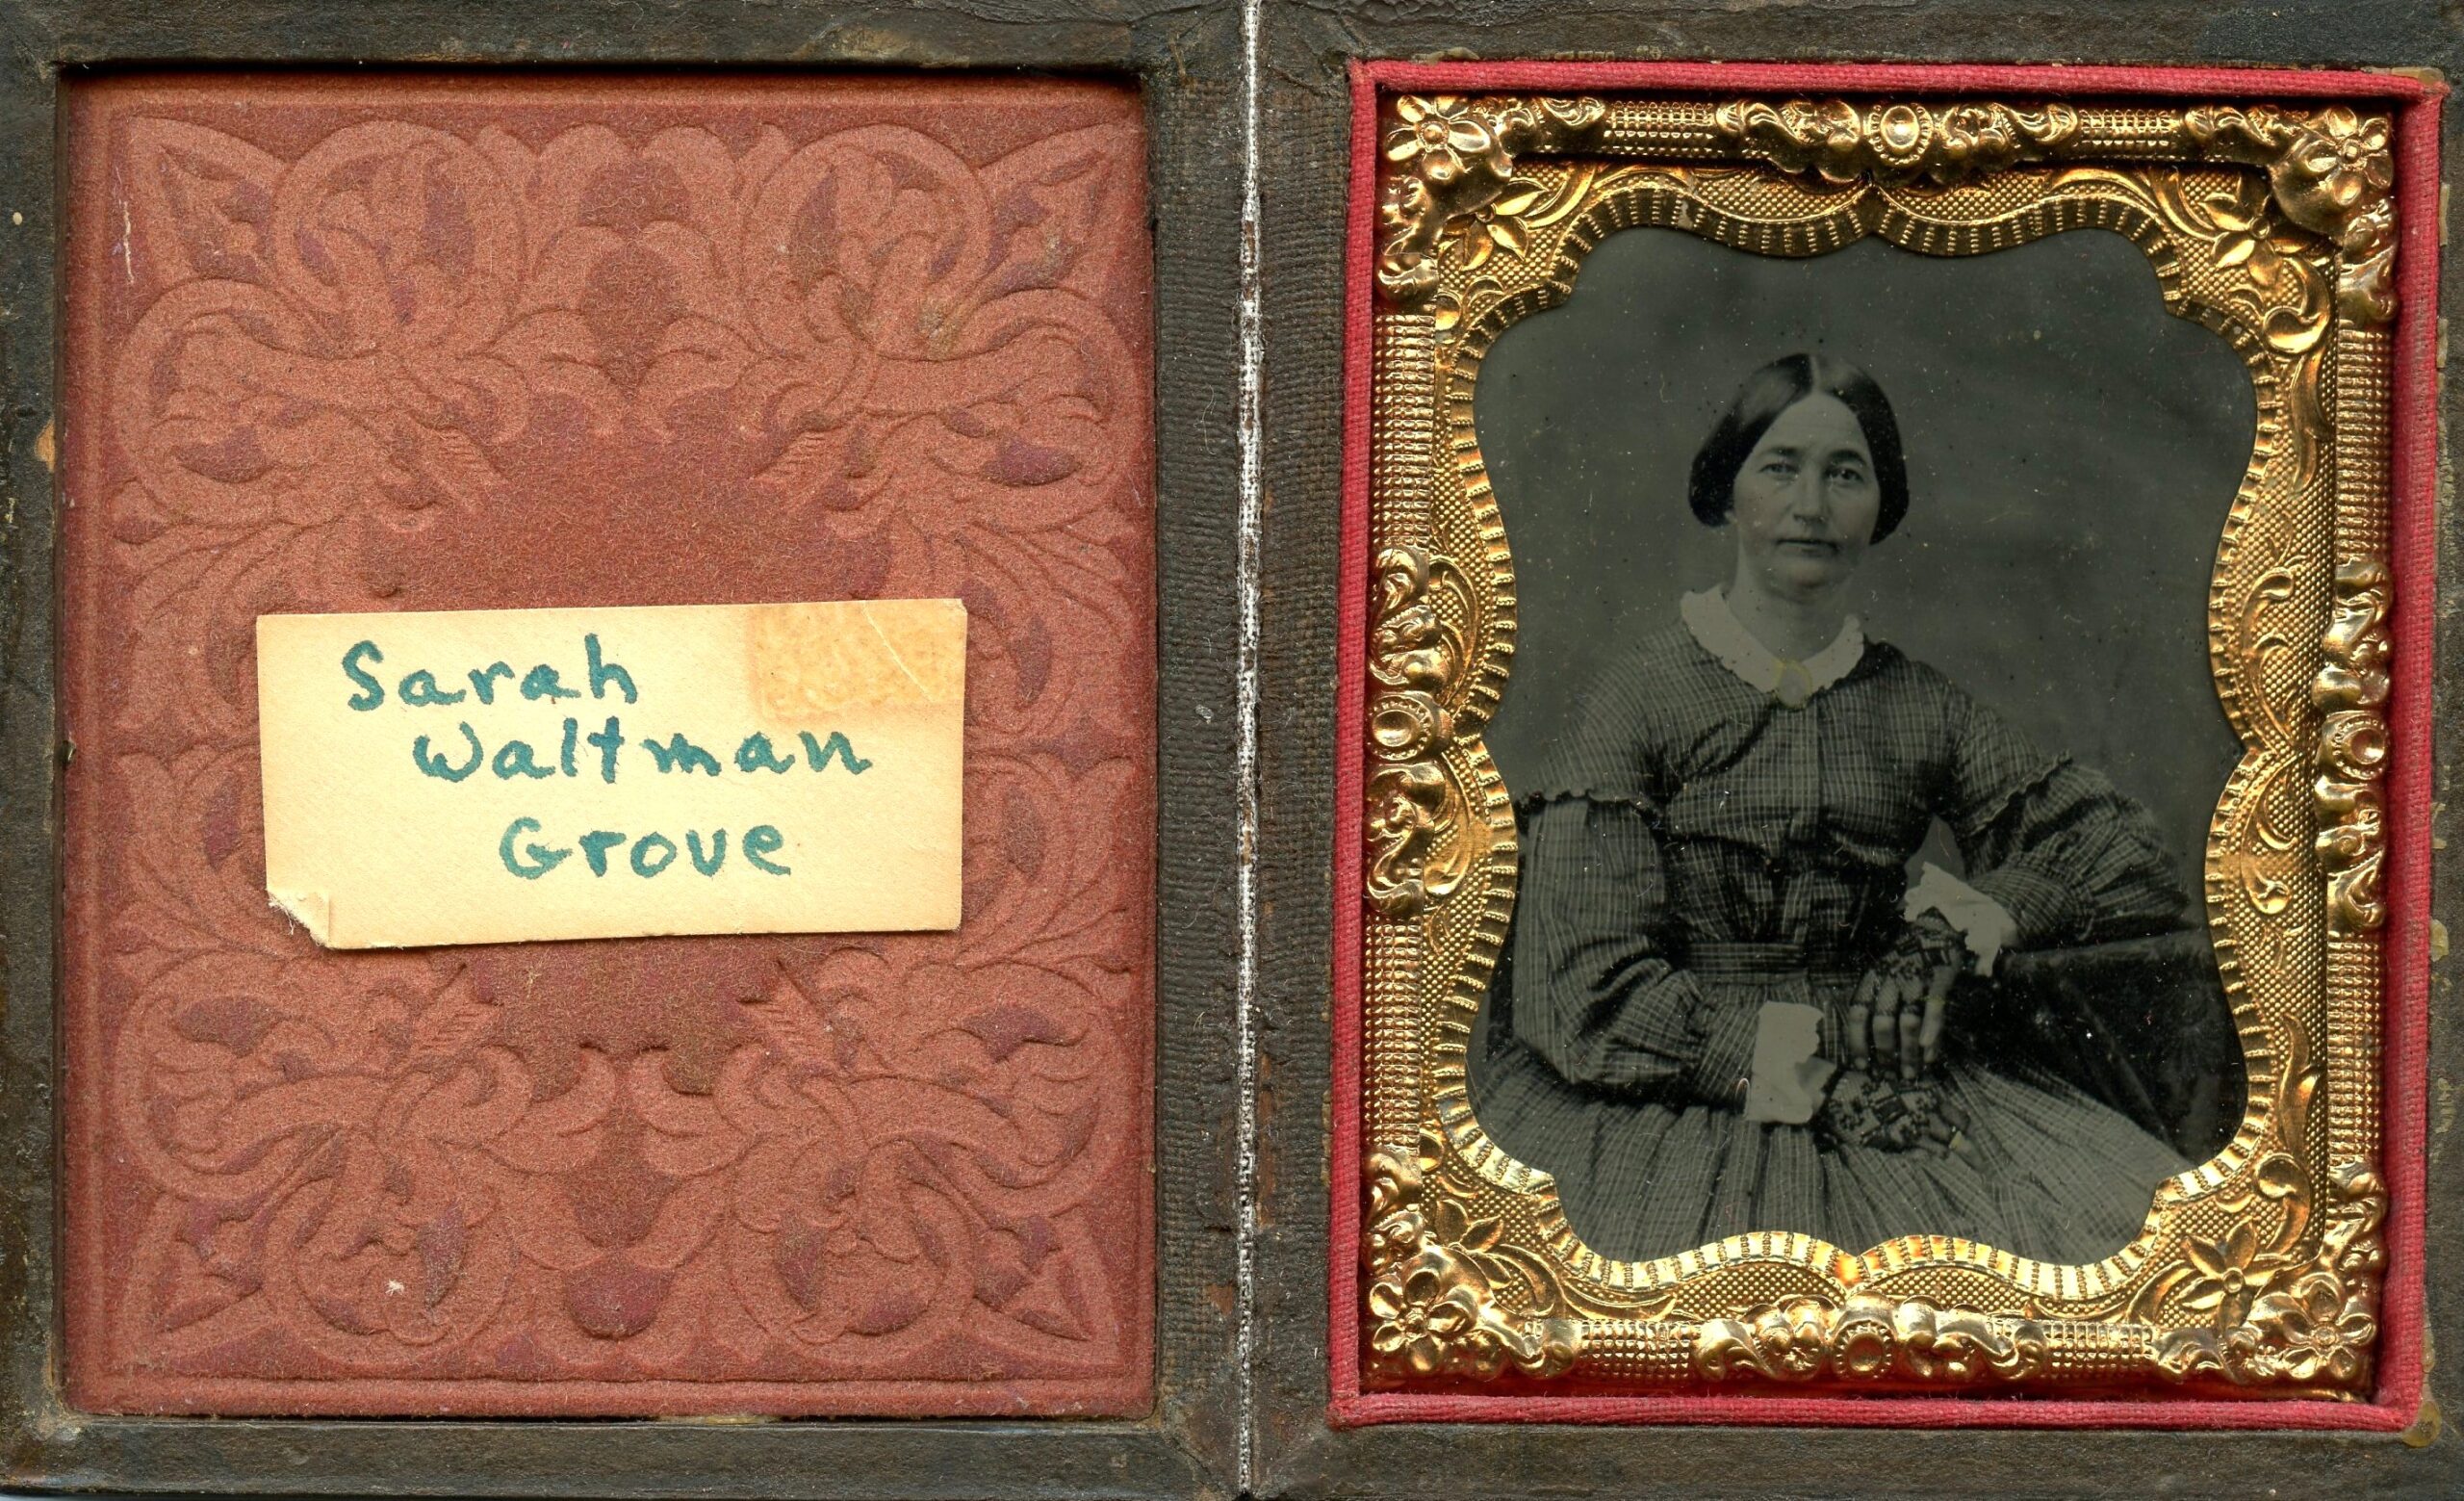 Sarah
Waltman
Grove